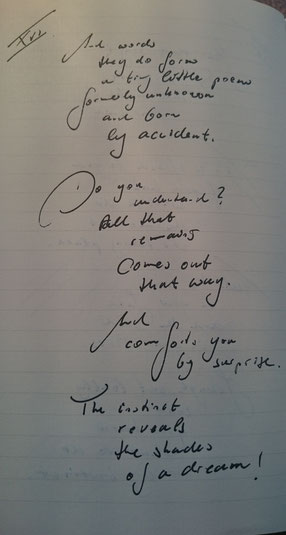 And words
they do form
a tiny little poem
formerly unknown
and born
by accident.
Do you
understand?
All that
remains
Comes out
that way.
And
comforts you
by surprise.
The instinct
reveals
the shades
of a dream!